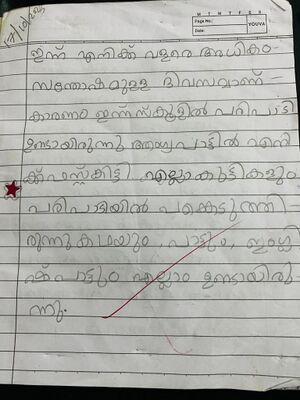 17/10/25
M T W T F S S
Page No.:
Date:
YOUVA
ഇന്ന് എനിക്ക് വളരെ അധികം
സന്തോഷമുള്ള ദിവസമാണ്
കാരണം ഇന്ന് സ്കൂളിൽ പരിപാടി
ഉണ്ടായിരുന്നു പാട്ടിൽ എനി
ക്ക് ഫസ്റ്റ് കിട്ടി എല്ലാ കുട്ടികളും
പരിപാടിയിൽ പങ്കെടുത്തി
രുന്നു കഥയും, പാട്ടും, ഇംഗ്ലി
ഷ് പാട്ടും എല്ലാം ഉണ്ടായിരു
ന്നു.